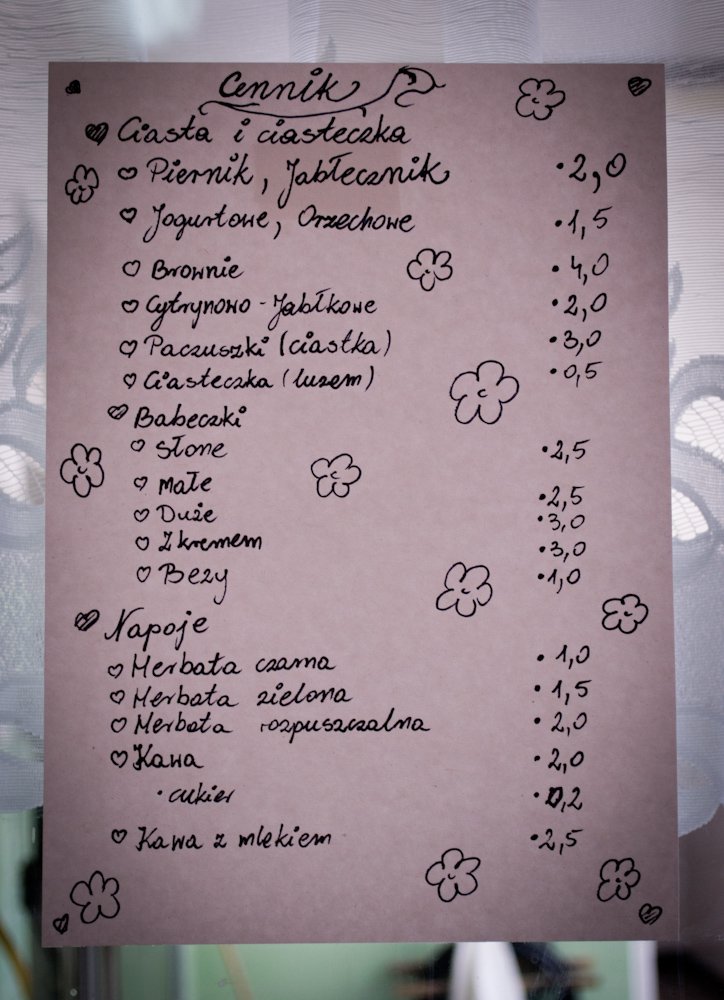 Cennik
Ciasta i ciasteczka
Piernik, Jabłecznik •2,0
Jogurtowe, Orzechowe •1,5
Brownie •4,0
Cytrynowo-Jabłkowe •2,0
Paczuszki (ciastka) •3,0
Ciasteczka (luzem) •0,5
Babeczki
Słone •2,5
Małe •2,5
Duże •3,0
Z kremem •3,0
Bezy •1,0
Napoje
Herbata czarna •1,0
Herbata zielona •1,5
Herbata rozpuszczalna •2,0
Kawa •2,0
•cukier •0,2
Kawa z mlekiem •2,5